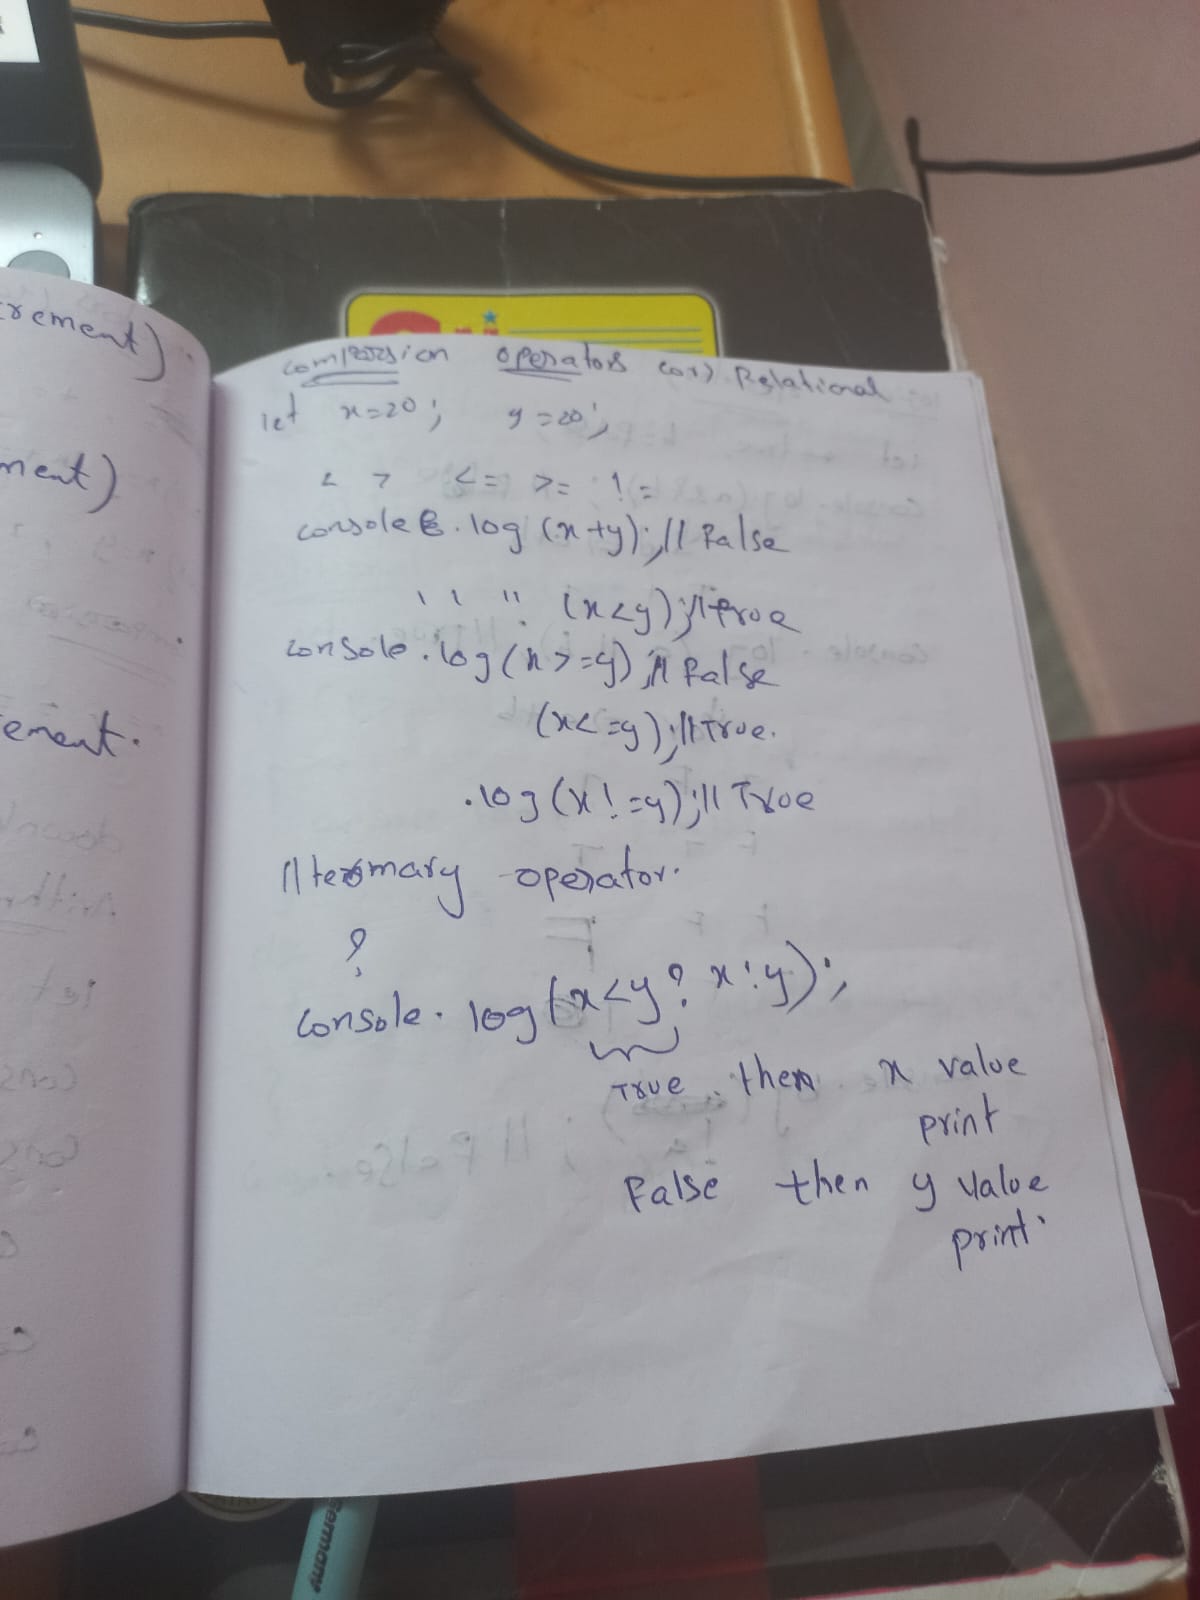 rement)
ment)
ement.
comparsion operators (or) Relational
let x=20; y=20;
< > <= >= !=
console.log(x+y);// False
" " (x<y);//true
console.log(x>=y);// False
(x<=y);//True.
.log(x!=y);// True
// ternary operator.
?
console.log(x<y? x:y);
True then x value
print
False then y value
print.